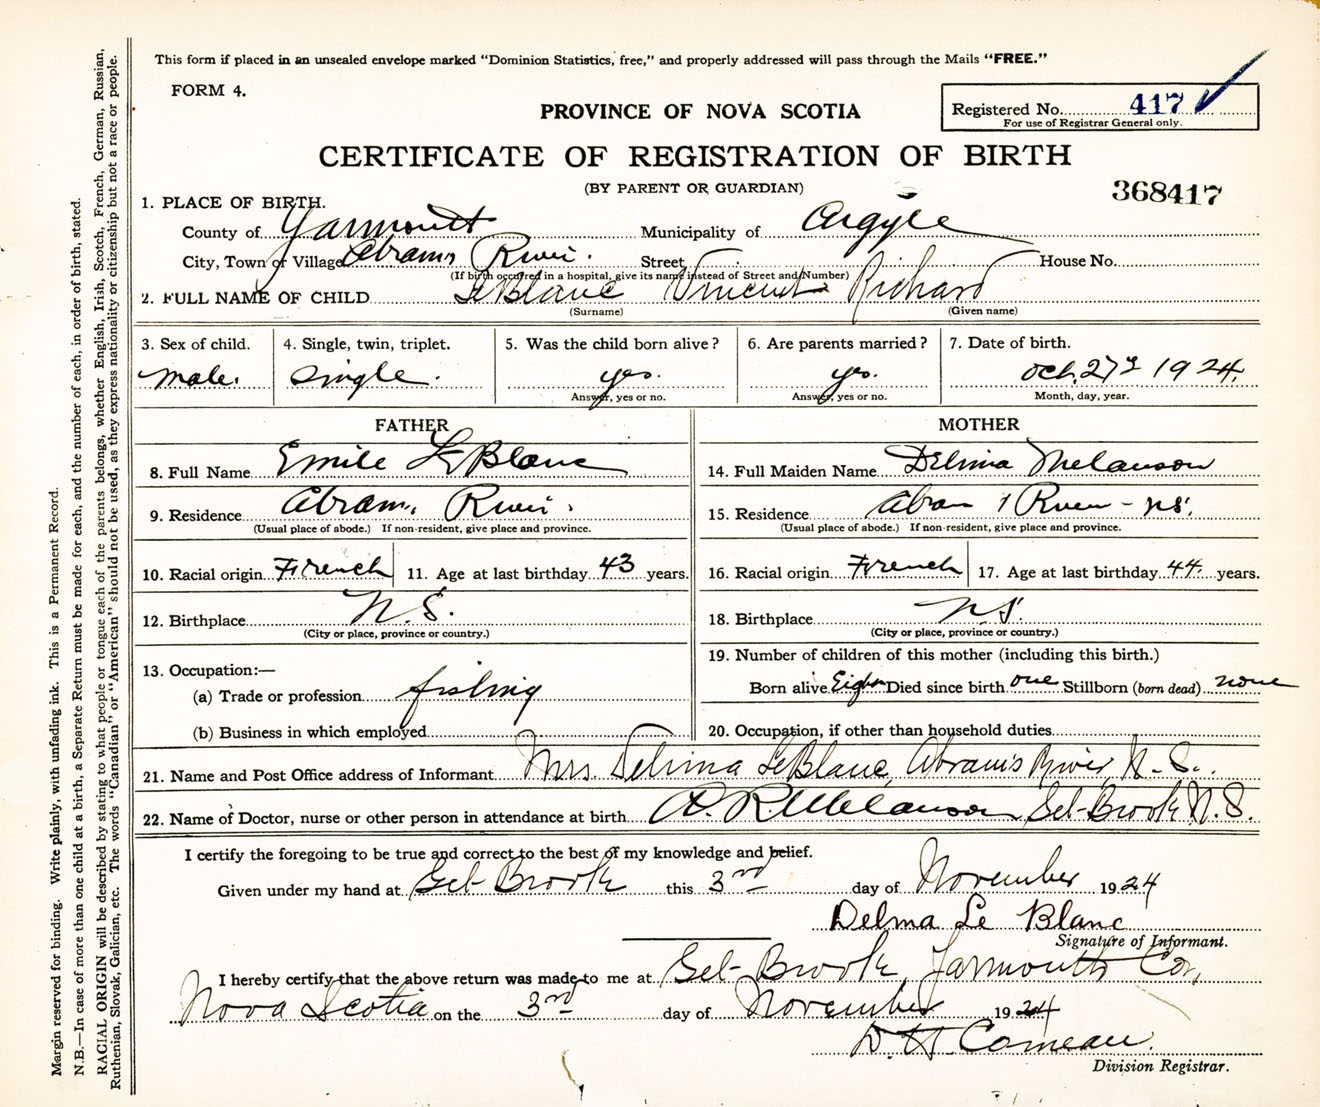 This form if placed in an unsealed envelope marked "Dominion Statistics, free," and properly addressed will pass through the Mails "FREE."
FORM 4.
PROVINCE OF NOVA SCOTIA
Registered No. 417
For use of Registrar General only.
CERTIFICATE OF REGISTRATION OF BIRTH
(BY PARENT OR GUARDIAN)
368417
1. PLACE OF BIRTH.
County of Yarmouth Municipality of Argyle
City, Town or Village Abrams River. Street House No.
(If birth occurred in a hospital, give its name instead of Street and Number)
2. FULL NAME OF CHILD LeBlanc Vincent Richard
(Surname) (Given name)
3. Sex of child. 4. Single, twin, triplet. 5. Was the child born alive? 6. Are parents married? 7. Date of birth.
male. single. yes. yes. Oct. 27 1924.
Answer, yes or no. Answer, yes or no. Month, day, year.
FATHER MOTHER
8. Full Name Emile LeBlanc 14. Full Maiden Name Delima Melanson
9. Residence Abrams River. 15. Residence Abram's River - NS.
(Usual place of abode.) If non-resident, give place and province. (Usual place of abode.) If non-resident, give place and province.
10. Racial origin French 11. Age at last birthday 43 years. 16. Racial origin French 17. Age at last birthday 44 years.
12. Birthplace N.S. 18. Birthplace NS.
(City or place, province or country.) (City or place, province or country.)
13. Occupation:— 19. Number of children of this mother (including this birth.)
(a) Trade or profession fishing Born alive Eight Died since birth one Stillborn (born dead) none
(b) Business in which employed 20. Occupation, if other than household duties
21. Name and Post Office address of Informant Mrs. Delima LeBlanc, Abram's River, N.S.
22. Name of Doctor, nurse or other person in attendance at birth A. R. Melanson Eel-Brook N.S.
I certify the foregoing to be true and correct to the best of my knowledge and belief.
Given under my hand at Eel-Brook this 3rd day of November 1924
Delma Le Blanc
Signature of Informant.
I hereby certify that the above return was made to me at Eel-Brook, Yarmouth Co.,
Nova Scotia on the 3rd day of November 1924
D. H. Comeau.
Division Registrar.
Margin reserved for binding. Write plainly, with unfading ink. This is a Permanent Record.
N.B.—In case of more than one child at a birth, a Separate Return must be made for each, and the number of each, in order of birth, stated.
RACIAL ORIGIN will be described by stating to what people or tongue each of the parents belongs, whether English, Irish, Scotch, French, German, Russian,
Ruthenian, Slovak, Galician, etc. The words "Canadian" or "American" should not be used, as they express nationality or citizenship but not a race or people.